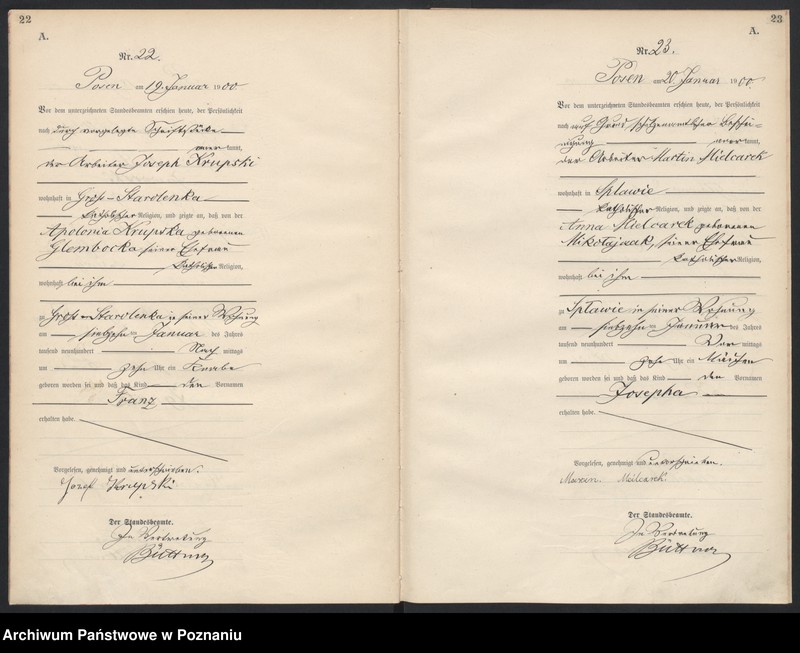 22
A.
Nr. 22.
Posen am 19. Januar 1900
Vor dem unterzeichneten Standesbeamten erschien heute, der Persönlichkeit
nach durch vorgelegte
kannt,
der Arbeiter Joseph Krupski
wohnhaft in Groß-Starolenka
katholischer Religion, und zeigte an, daß von der
Apolonia Krupska geborenen
Glembocka seiner Ehefrau
katholischer Religion,
wohnhaft bei ihm
zu Groß-Starolenka in seiner Wohnung
am siebzehnten Januar des Jahres
tausend neunhundert Nach mittags
um zehn Uhr ein Knabe
geboren worden sei und daß das Kind den Vornamen
Franz
erhalten habe.
Vorgelesen, genehmigt und unterschrieben.
Jozef Krupski
Der Standesbeamte.
In Vertretung
Büttner
23
A.
Nr. 23.
Posen am 20 Januar 1900.
Vor dem unterzeichneten Standesbeamten erschien heute, der Persönlichkeit
nach auf Grund
kannt,
der Arbeiter Martin Mielcarek
wohnhaft in Splawie
katholischer Religion, und zeigte an, daß von der
Anna Mielcarek geborenen
Mikołajczak, seiner Ehefrau
katholischer Religion,
wohnhaft bei ihm
zu Splawie in seiner Wohnung
am siebzehnten Januar des Jahres
tausend neunhundert Vor mittags
um zehn Uhr ein Mädchen
geboren worden sei und daß das Kind den Vornamen
Josepha
erhalten habe.
Vorgelesen, genehmigt und unterschrieben.
Mielcarek
Der Standesbeamte.
In Vertretung
Büttner
Archiwum Państwowe w Poznaniu